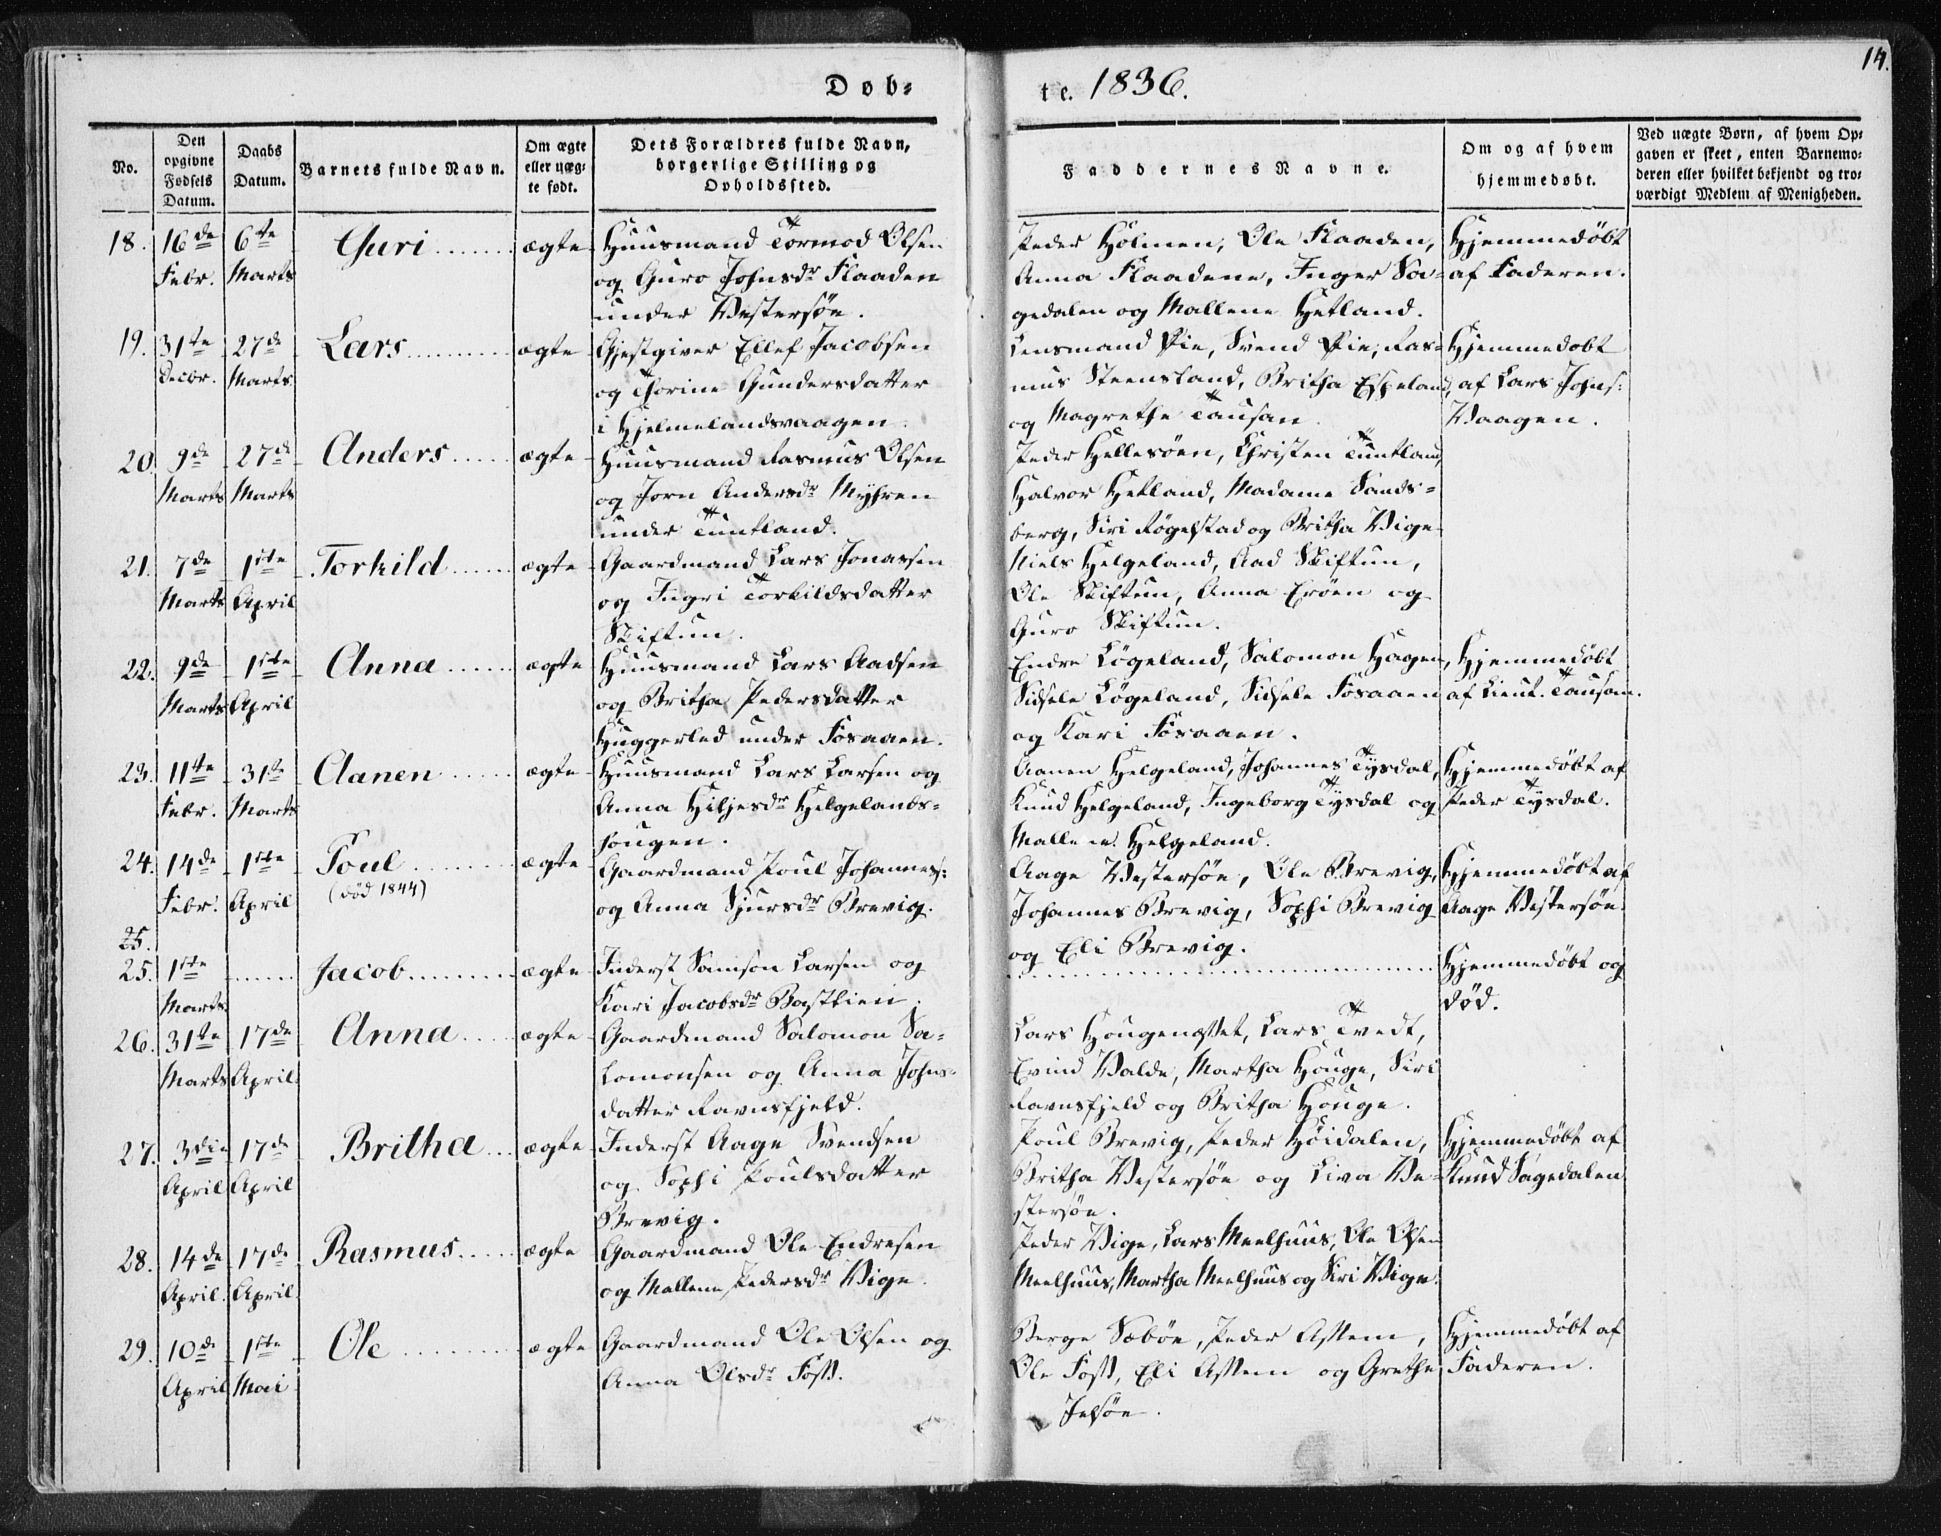 Døb-
te. 1836.
14.
No.
Den opgivne Fødsels Datum.
Daabs Datum.
Barnets fulde Navn.
Om ægte eller uægte født.
Dets Forældres fulde Navn, borgerlige Stilling og Opholdssted.
Faddernes Navne.
Om og af hvem hjemmedøbt.
Ved uægte Børn, af hvem Op-
gaven er skeet, enten Barnemo-
deren eller hvilket bekjendt og tro-
værdigt Medlem af Menigheden.
18. 16de Febr. 6te Marts Guri ægte
Huusmand Tormod Olsen
og Guro Johnsdr Flaaden
under Vestersøe.
Peder Holmen, Ole Flaaden,
Anna Flaadene, Inger Sa-
gedalen og Mallene Hetland.
Hjemmedøbt
af Faderen.
19. 31te Decbr. 27de Marts Lars ægte
Gjestgiver Ellef Jacobsen
og Thorine Gundersdatter
i Hjelmelandsvaagen.
Lensmand Pie, Svend Pie, Ras-
mus Steensland, Britha Espeland,
og Magrethe Tausan.
Hjemmedøbt
af Lars Johns:
Vaagen.
20. 9de Marts 27de Marts Anders ægte
Huusmand Rasmus Olsen
og Jorn Andersdr Myhren
under Tuntland.
Peder Hellesøen, Christen Tuntland,
Halvor Hetland, Madame Sands-
berg, Siri Røgelstad og Britha Vige
21. 7de Marts 1ste April Torkild ægte
Gaardmand Lars Jonassen
og Ingri Torkildsdatter
Skiftun.
Niels Helgeland, Aad Skiftun,
Ole Skiftun, Anna Erøen og
Guro Skiftun.
22. 9de Marts 1ste April Anna ægte
Huusmand Lars Aadsen
og Britha Pedersdatter
Huggerled under Fosaaen.
Endre Løgeland, Salomon Hagen,
Sidsele Løgeland, Sidsele Fosaaen
og Kari Fosaaen.
Hjemmedøbt
af Lieut. Tausan.
23. 11te Febr. 31te Marts Aanen ægte
Huusmand Lars Larsen og
Anna Hiljesdr Helgelands-
hougen.
Aanen Helgeland, Johannes Tysdal,
Knud Helgeland, Ingeborg Tysdal og
Mallene Helgeland.
Hjemmedøbt af
Peder Tysdal.
24. 14de Febr. 1ste April Poul ægte
(død 1844)
Gaardmand Poul Johannes:
og Anna Sjursdr Brevig.
Aage Vestersøe, Ole Brevig,
Johannes Brevig, Sophi Brevig
og Eli Brevig.
Hjemmedøbt af
Aage Vestersøe.
25.
25. 1ste Marts Jacob ægte
Inderst Samson Larsen og
Kari Jacobsdr Bastlien.
Hjemmedøbt og
død.
26. 31te Marts 17de April Anna ægte
Gaardmand Salomon Sa-
lomonsen og Anna Johns-
datter Ravnsfjeld.
Lars Hougenæsset, Lars Tvedt,
Evind Valde, Martha Houge, Siri
Ravnsfjeld og Britha Houge.
27. 3die April 17de April Britha ægte
Inderst Aage Svendsen
og Sophi Poulsdatter
Brevig.
Poul Brevig, Peder Høidalen,
Britha Vestersøe og Liva Ve-
stersøe.
Hjemmedøbt af
Knud Sagedalen
28. 14de April 17de April Rasmus ægte
Gaardmand Ole Endresen
og Mallene Pedersdr Vige.
Peder Vige, Lars Meelhuus, Ole Olsen
Meelhuus, Martha Meelhuus og Siri Vige.
29. 10de April 1ste Mai Ole ægte
Gaardmand Ole Olsen og
Anna Olsdr Foss.
Berge Sæbøe, Peder Assem,
Ole Foss, Eli Assem og Grethe
Jelsøe.
Hjemmedøbt af
Faderen.